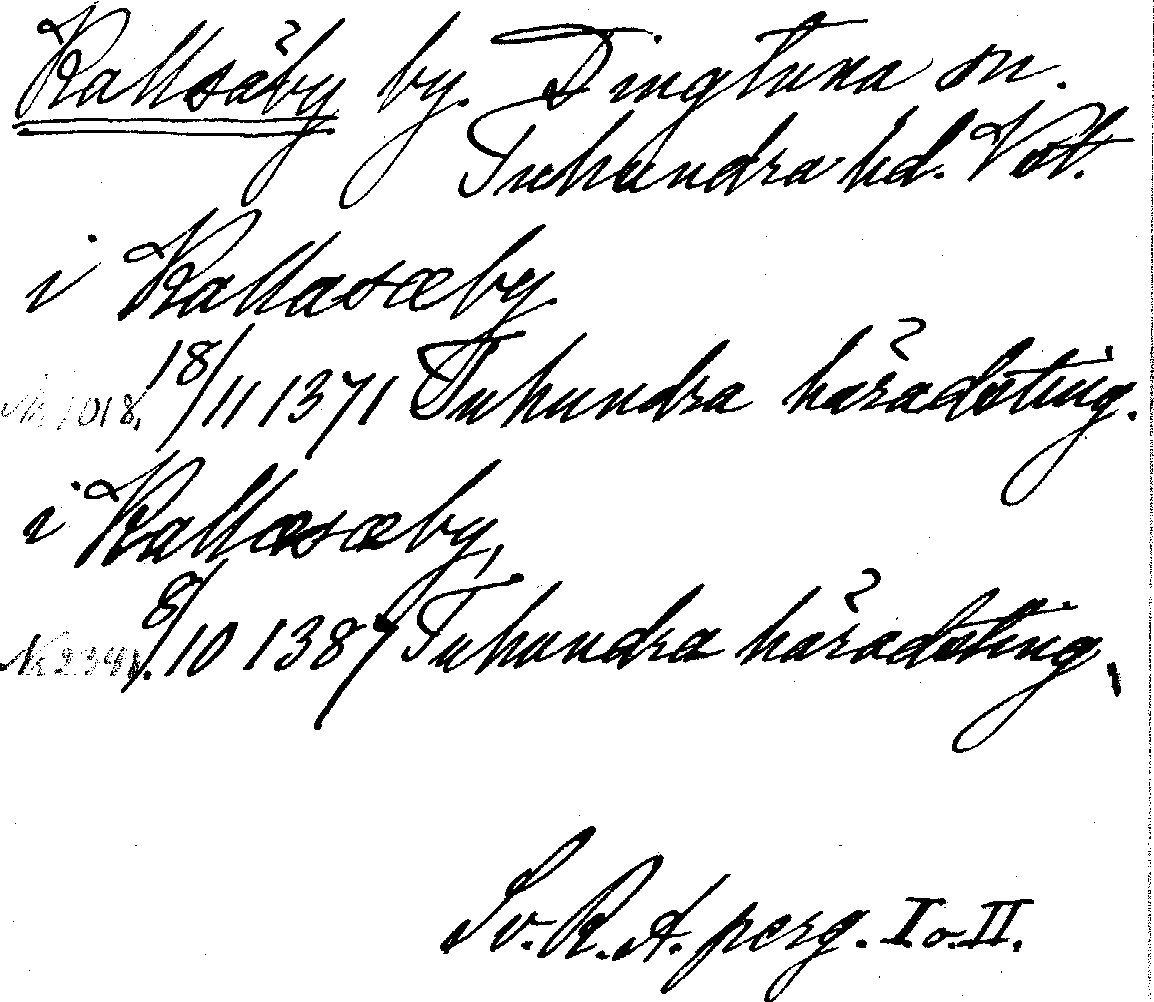 Kallsäby by. Dingtuna sn.
Tuhundra hd. Vstl.
i Kallasæby
Nr 1018. 18/11 1371 Tuhundra häradsting.
i Kallæsæby,
8/10 1387 Tuhundra häradsting,
Sv. R. A. perg. I o. II.